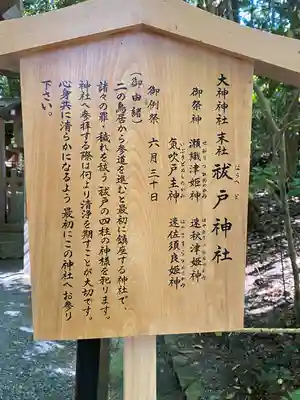 大神神社 末社 祓戸神社
はらへ ど
御祭神 瀬織津姫神 速秋津姫神
気吹戸主神 速佐須良姫神
御例祭 六月三十日
(御由緒)
二の鳥居から参道を進むと最初に鎮座する神社で、
諸々の罪・穢れを祓う祓戸の四柱の神様を祀ります。
神社へ参拝する際は何より清浄を期すことが大切です。
心身共に清らかになるよう 最初にこの神社へお参り
下さい。